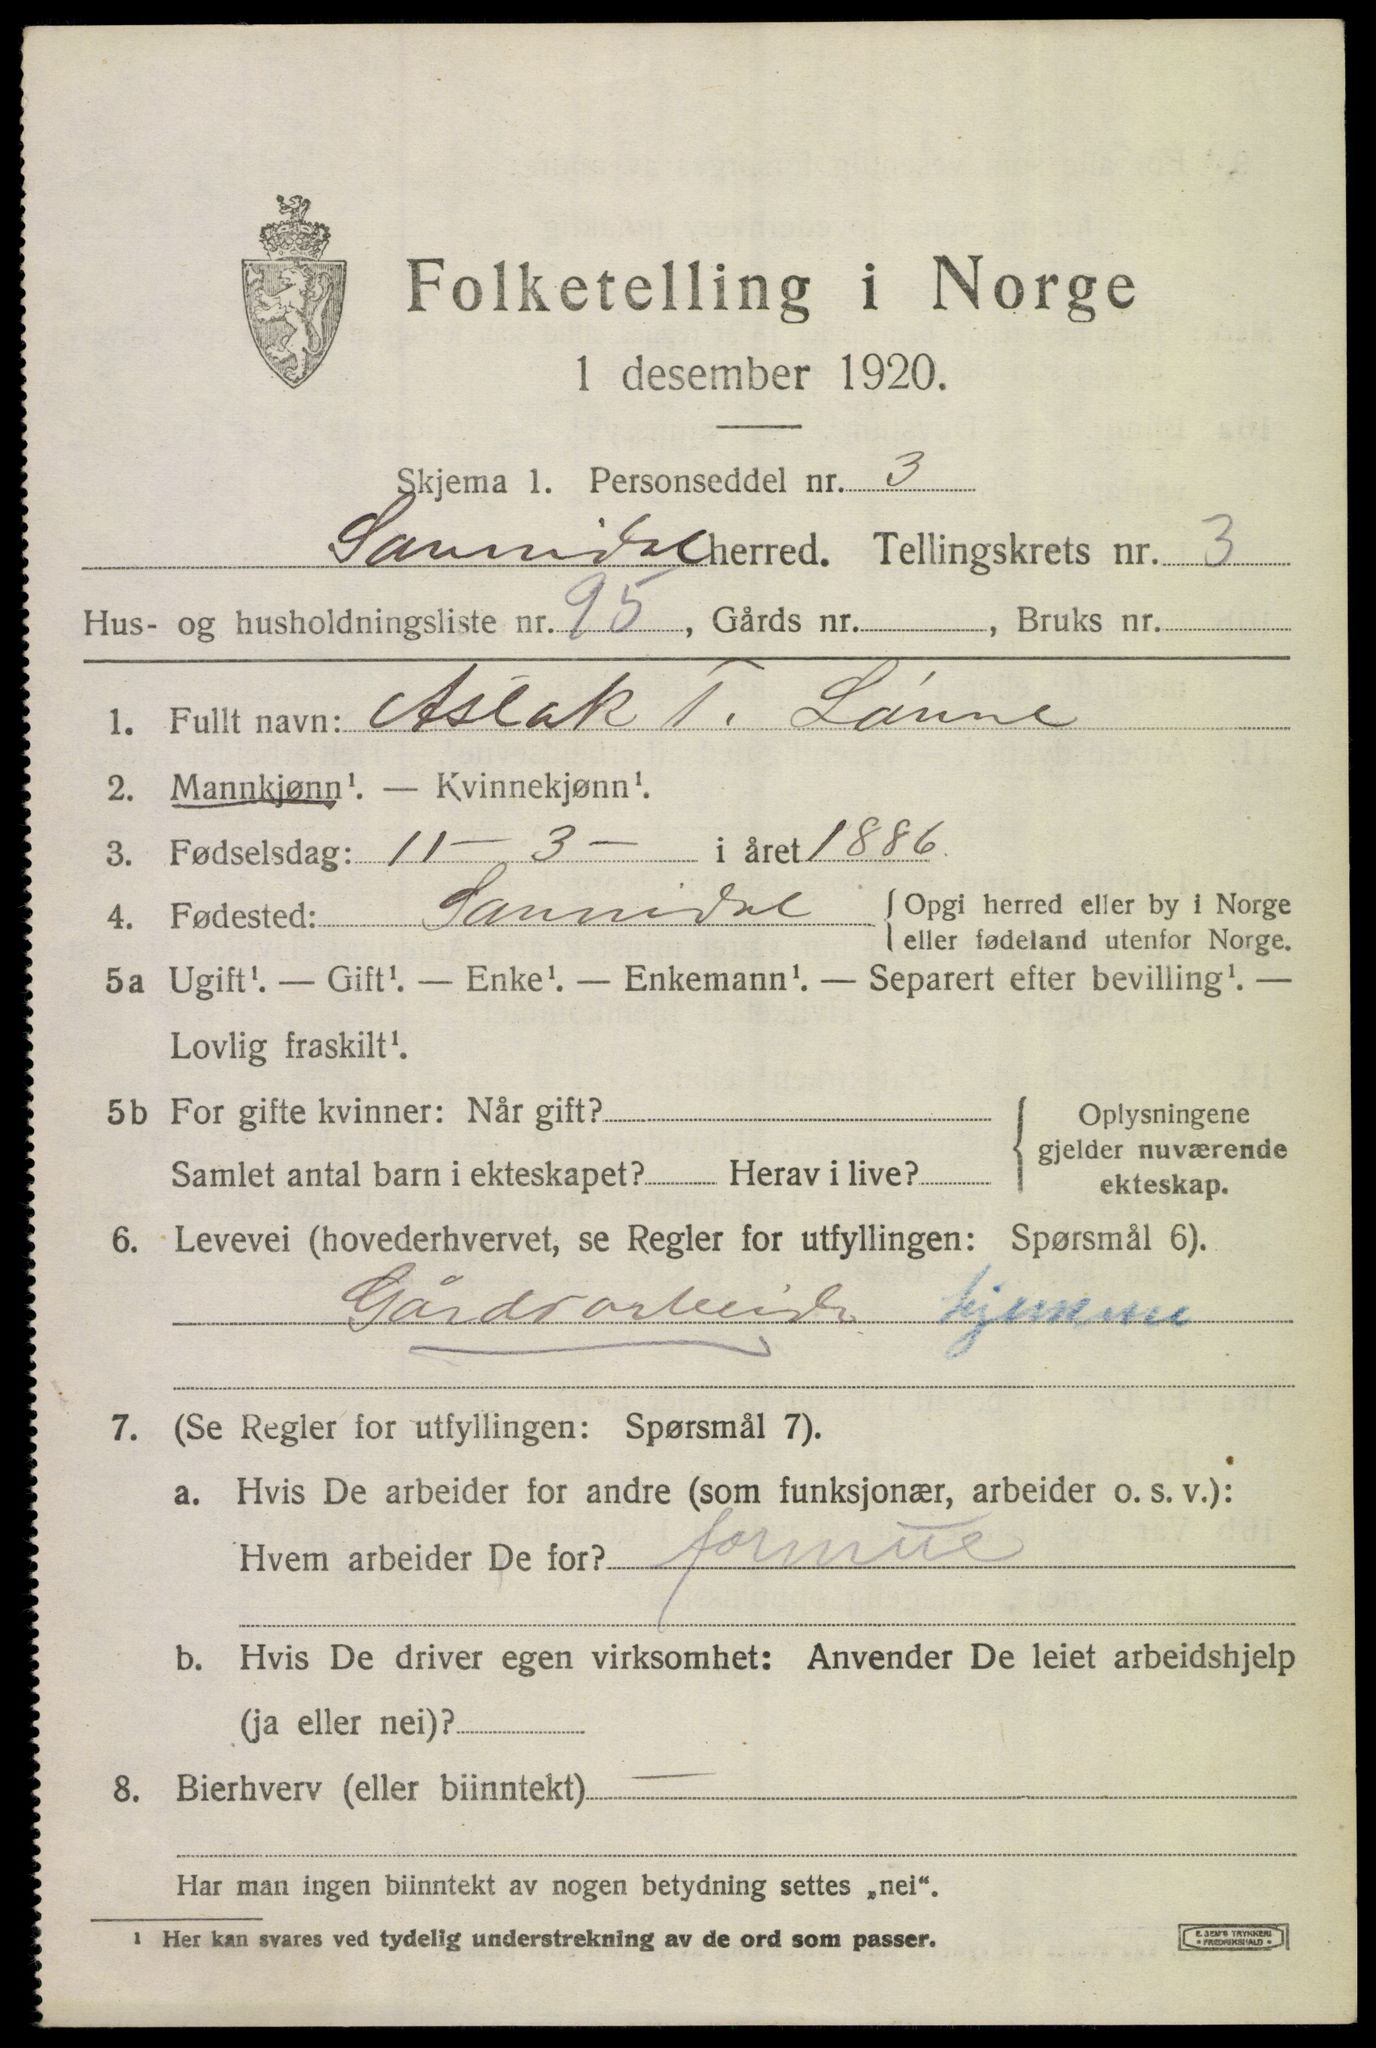 Folketelling i Norge
1 desember 1920.
Skjema 1. Personseddel nr. 3
Sannidal herred. Tellingskrets nr. 3
Hus- og husholdningsliste nr. 95, Gårds nr. , Bruks nr.
1. Fullt navn: Aslak T. Lønne
2. Mannkjønn¹. — Kvinnekjønn¹.
3. Fødselsdag: 11 — 3 — i året 1886.
4. Fødested: Sannidal { Opgi herred eller by i Norge
eller fødeland utenfor Norge.
5a Ugift¹. — Gift¹. — Enke¹. — Enkemann¹. — Separert efter bevilling¹. —
Lovlig fraskilt¹.
5b For gifte kvinner: Når gift? { Oplysningene
gjelder nuværende
Samlet antal barn i ekteskapet? Herav i live? ekteskap.
6. Levevei (hovederhvervet, se Regler for utfyllingen: Spørsmål 6).
Gårdsarbeide hjemme
7. (Se Regler for utfyllingen: Spørsmål 7).
a. Hvis De arbeider for andre (som funksjonær, arbeider o. s. v.):
Hvem arbeider De for? formue
b. Hvis De driver egen virksomhet: Anvender De leiet arbeidshjelp
(ja eller nei)?
8. Bierhverv (eller biinntekt) —
Har man ingen biinntekt av nogen betydning settes „nei“.
¹ Her kan svares ved tydelig understrekning av de ord som passer.
E. SEM'S TRYKKERI
* FREDRIKSHALD *